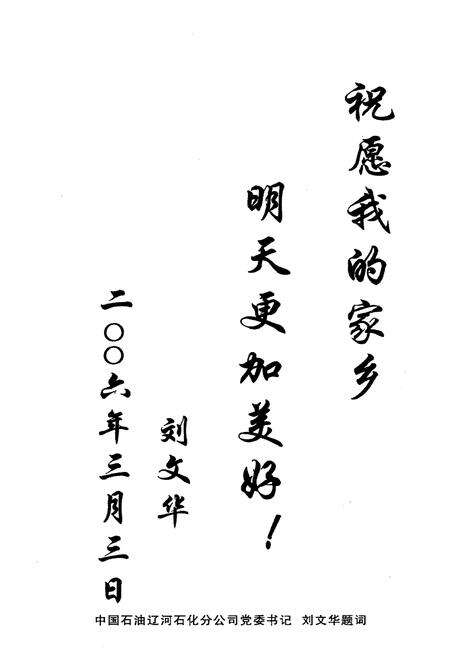 祝愿我的家乡
明天更加美好！
刘文华
二〇〇六年三月三日
中国石油辽河石化分公司党委书记 刘文华题词